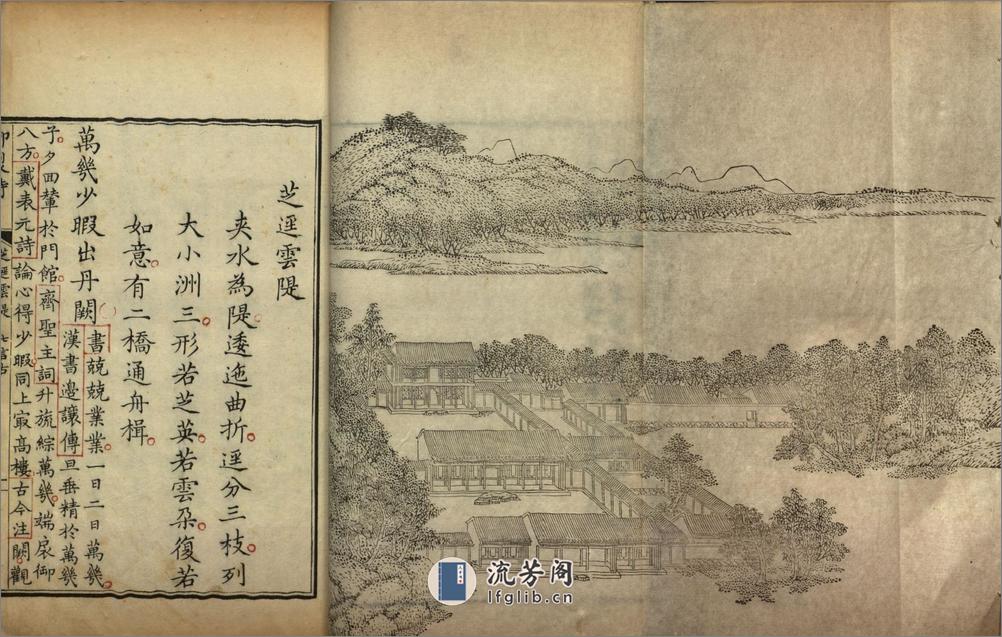 芝逕雲隄
夾水為隄逶迤曲折逕分三枝列
大小洲三形若芝英若雲朶復若
如意有二橋通舟楫
萬幾少暇出丹闕
書兢兢業業一日二日萬幾
漢書邊讓傳旦垂精於萬幾
子夕回輦於門館齊聖主詞升旒綜萬幾端扆御
八方戴表元詩論心得少暇同上㝡高樓古今注闕觀
芝逕雲隄
流芳阁
lfglib.cn